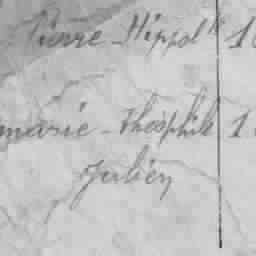 Pierre - Hippolte 1
marie - théophile 1
Julien